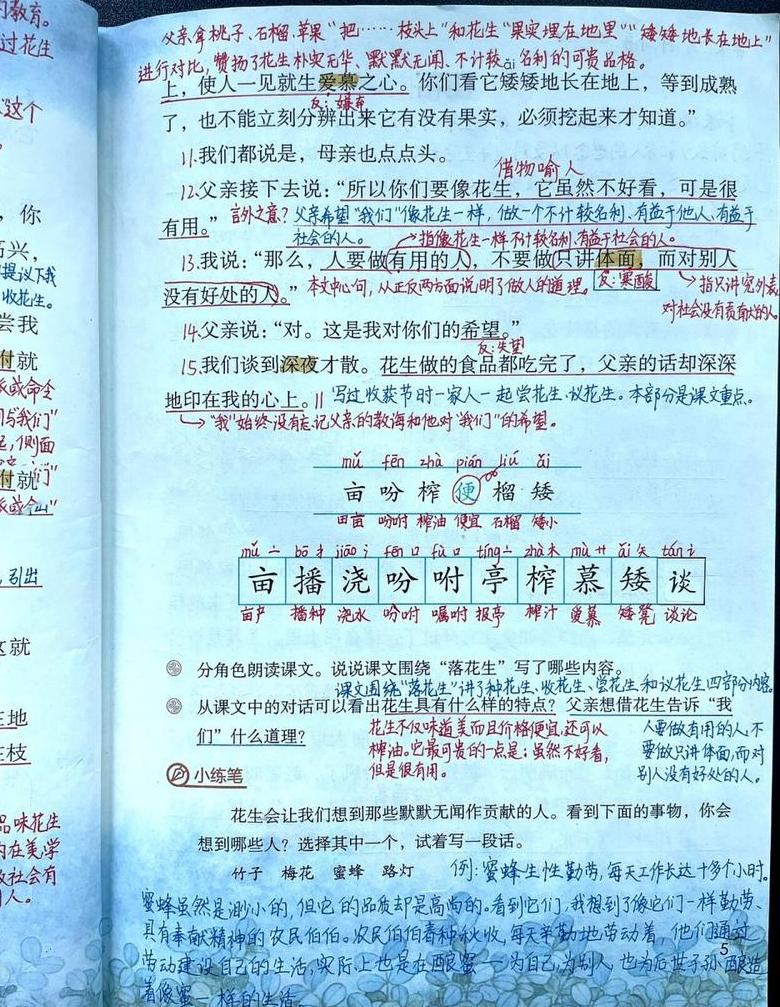 的教育。
过花生
这个
，你
高兴，
提议下我
收花生。
尝我
付就
派或命令
们与我们”
起，侧面
付就
派或命
，引出
这就
在地
在枝
品味花生
内在美，学
社会有
人。
父亲拿桃子、石榴、苹果“把……枝头上”和花生“果实埋在地里”“矮矮地长在地上”
进行对比，赞扬了花生朴实无华、默默无闻、不计较名利的可贵品格。
ǎi
上，使人一见就生爱慕之心。你们看它矮矮地长在地上，等到成熟
反：嫌弃
了，也不能立刻分辨出来它有没有果实，必须挖起来才知道。”
11.我们都说是，母亲也点点头。
借物喻人
12.父亲接下去说：“所以你们要像花生，它虽然不好看，可是很
有用。”言外之意？父亲希望“我们”像花生一样，做一个不计较名利、有益于他人、有益于
社会的人。
指像花生一样不计较名利、有益于社会的人。
13.我说：“那么，人要做有用的人，不要做只讲体面，而对别人
没有好处的人。”本文中心句，从正反两方面说明了做人的道理。
反：寒酸
指只讲究外表，
对社会没有贡献的人
14.父亲说：“对。这是我对你们的希望。”
反：失望
15.我们谈到深夜才散。花生做的食品都吃完了，父亲的话却深深
地印在我的心上。‖写过收获节时一家人一起尝花生、议花生。本部分是课文重点。
“我”始终没有忘记父亲的教诲和他对“我们”的希望。
mǔ fēn zhà pián liú ǎi
亩 吩 榨 便 榴 矮
田亩 吩咐 榨油 便宜 石榴 矮小
mǔ 亠 bō 扌 jiāo 氵 fēn 口 fù 口 tíng 亠 zhà 木 mù ǎi 矢 tán 讠
亩 播 浇 吩 咐 亭 榨 慕 矮 谈
亩产 播种 浇水 吩咐 嘱咐 报亭 榨汁 爱慕 矮凳 谈论
分角色朗读课文。说说课文围绕“落花生”写了哪些内容。
课文围绕“落花生”讲了种花生、收花生、尝花生和议花生四部分内容。
从课文中的对话可以看出花生具有什么样的特点？父亲想借花生告诉“我
们”什么道理？
花生不仅味道美而且价格便宜，还可以
榨油。它最可贵的一点是：虽然不好看，
但是很有用。
人要做有用的人，不
要做只讲体面，而对
别人没有好处的人。
小练笔
花生会让我们想到那些默默无闻作贡献的人。看到下面的事物，你会
想到哪些人？选择其中一个，试着写一段话。
竹子 梅花 蜜蜂 路灯
例：蜜蜂生性勤劳，每天工作长达十多个小时。
蜜蜂虽然是渺小的，但它的品质却是高尚的。看到它们，我想到了像它们一样勤劳、
具有奉献精神的农民伯伯。农民伯伯春种秋收，每天辛勤地劳动着，他们通过
劳动建设自己的生活，实际上也是在酿蜜——为自己，为别人，也为后世子孙酿造
着像蜜一样的生活。
5